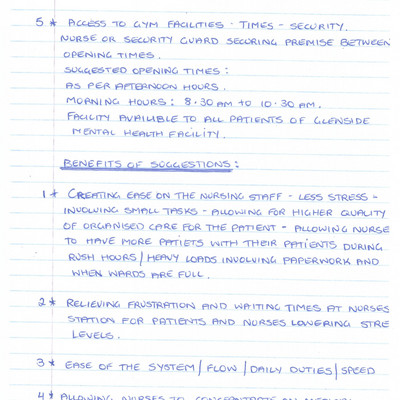 5 * ACCESS TO GYM FACILITIES - TIMES - SECURITY.
NURSE OR SECURITY GUARD SECURING PREMISE BETWEEN
OPENING TIMES.
SUGGESTED OPENING TIMES:
AS PER AFTERNOON HOURS.
MORNING HOURS: 8.30 AM TO 10.30 AM.
FACILITY AVAILIBLE TO ALL PATIENTS OF GLENSIDE
MENTAL HEALTH FACILITY.
BENEFITS OF SUGGESTIONS:
1 * CREATING EASE ON THE NURSING STAFF - LESS STRESS -
INVOLVING SMALL TASKS - ALLOWING FOR HIGHER QUALITY
OF ORGANISED CARE FOR THE PATIENT - ALLOWING NURSE
TO HAVE MORE PATIETS WITH THEIR PATIENTS DURING
RUSH HOURS / HEAVY LOADS INVOLVING PAPERWORK AND
WHEN WARDS ARE FULL.
2 * RELIEVING FRUSTRATION AND WAITING TIMES AT NURSES
STATION FOR PATIENTS AND NURSES LOWERING STRE
LEVELS.
3 * EASE OF THE SYSTEM / FLOW / DAILY DUTIES / SPEED
4 * ALLOWING NURSES TO CONCENTRATE ON